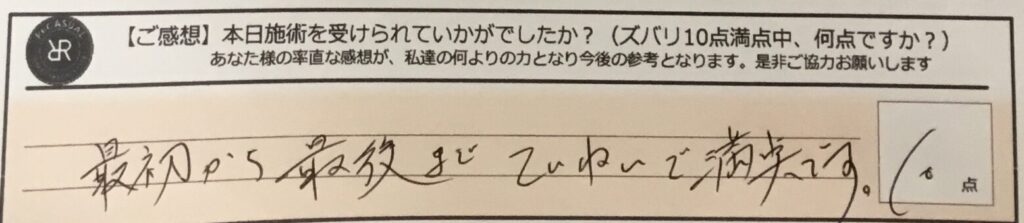 【ご感想】本日施術を受けられていかがでしたか？（ズバリ10点満点中、何点ですか？）
あなた様の率直な感想が、私達の何よりの力となり今後の参考となります。是非ご協力お願いします
最初から最後まで ていねいで満足です。
10点